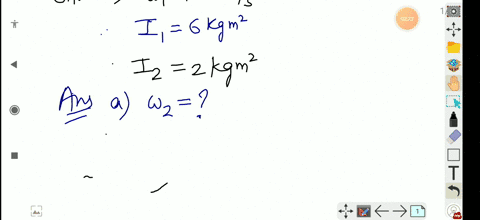 I₁ = 6 Kgm²
I₂ = 2 kgm²
Ans a) ω₂ = ?